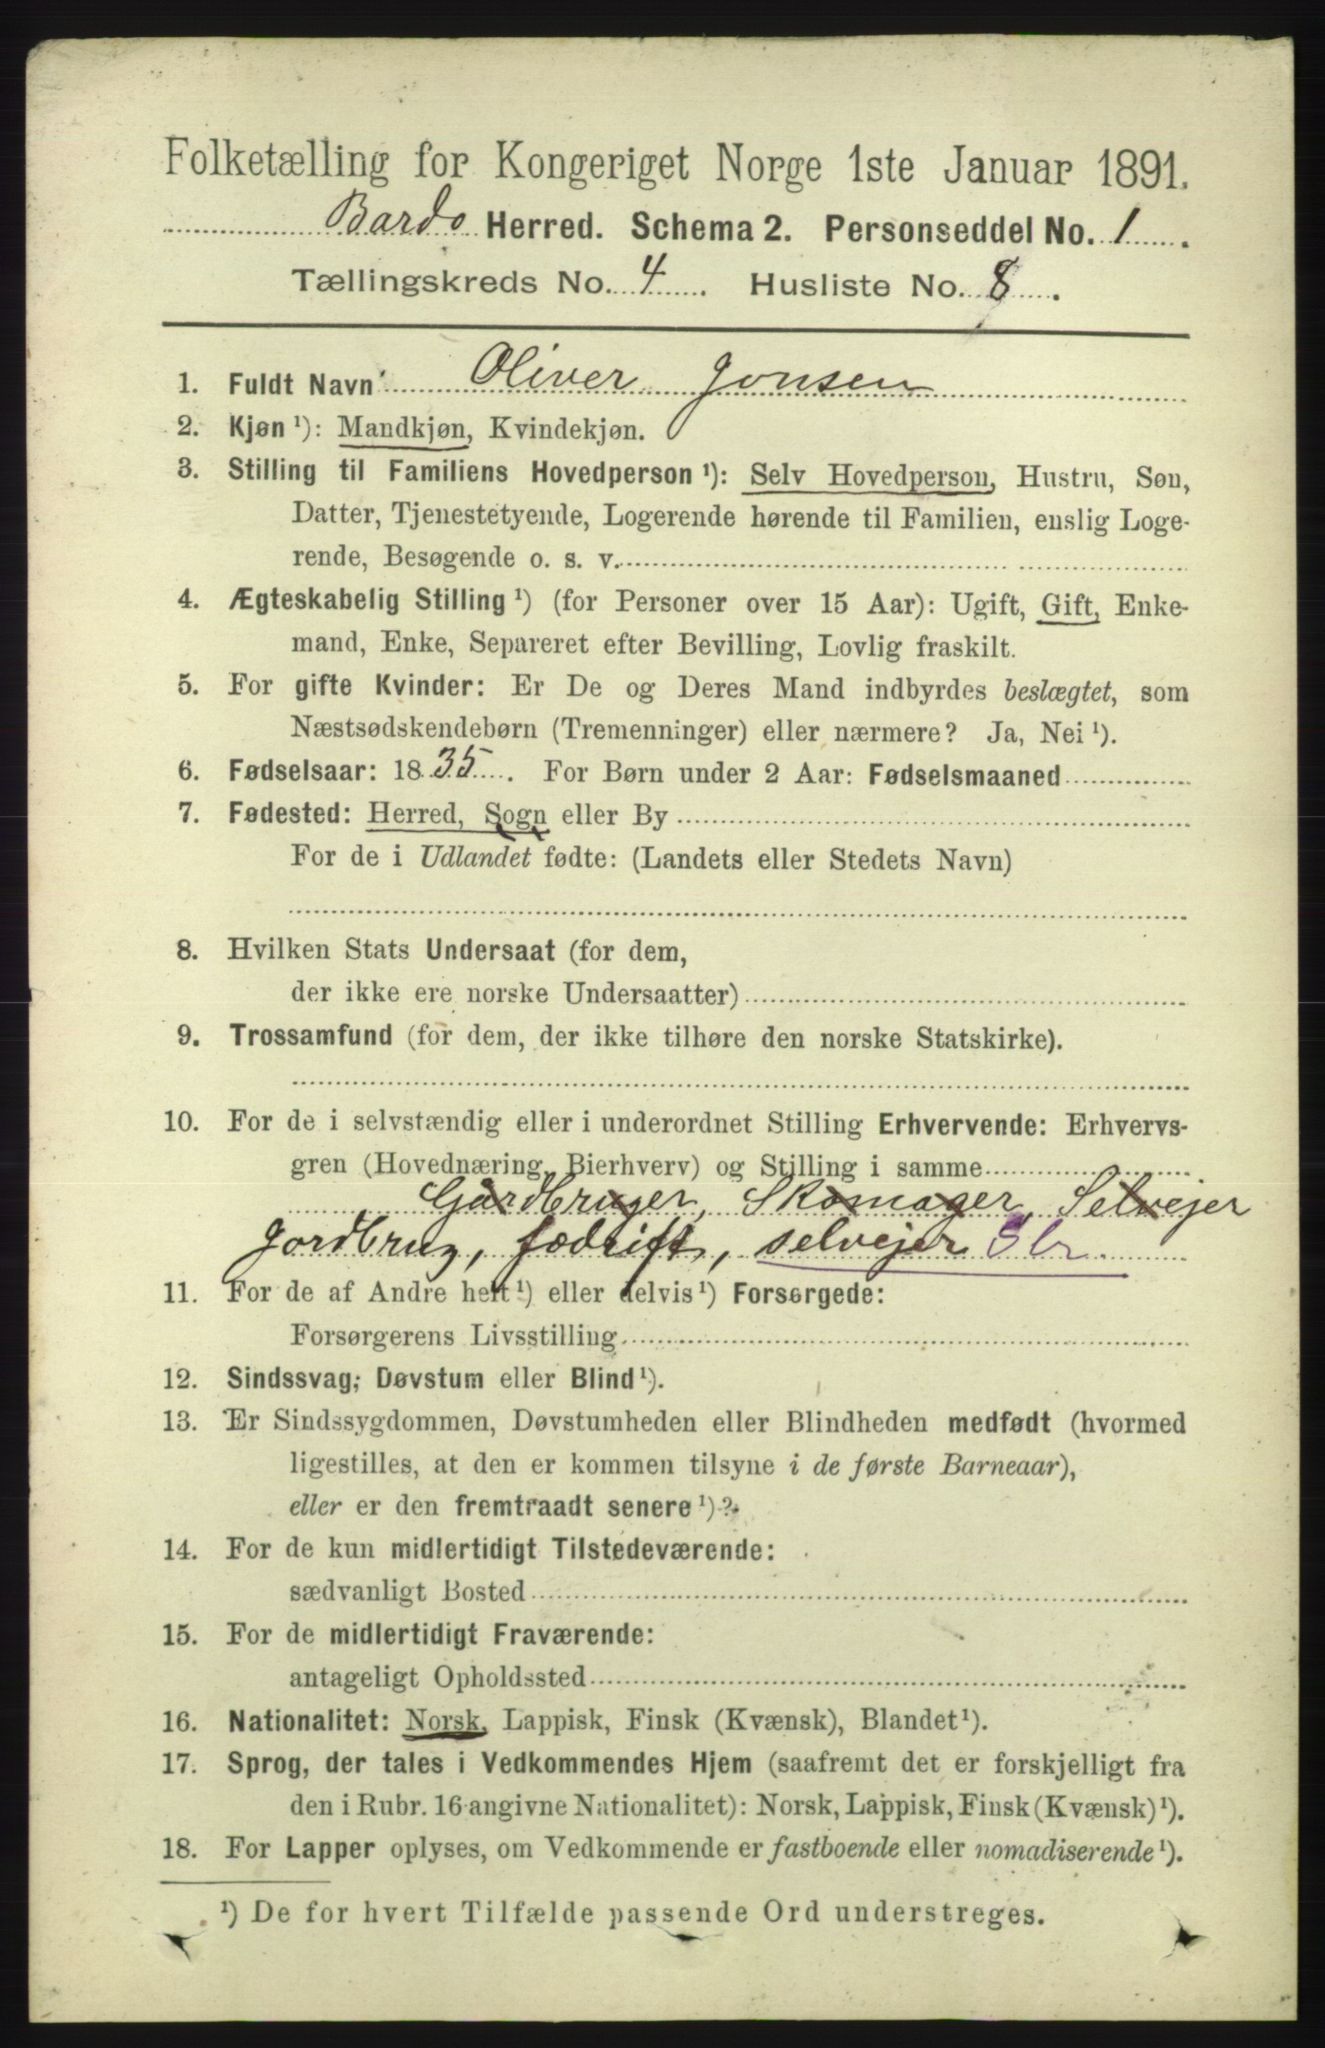 Folketælling for Kongeriget Norge 1ste Januar 1891.
Bardo Herred. Schema 2. Personseddel No. 1.
Tællingskreds No. 4. Husliste No. 8.
1. Fuldt Navn Oliver Jonsen
2. Kjøn ¹): Mandkjøn, Kvindekjøn.
3. Stilling til Familiens Hovedperson ¹): Selv Hovedperson, Hustru, Søn,
Datter, Tjenestetyende, Logerende hørende til Familien, enslig Loge-
rende, Besøgende o. s. v.
4. Ægteskabelig Stilling ¹) (for Personer over 15 Aar): Ugift, Gift, Enke-
mand, Enke, Separeret efter Bevilling, Lovlig fraskilt.
5. For gifte Kvinder: Er De og Deres Mand indbyrdes beslægtet, som
Næstsødskendebørn (Tremenninger) eller nærmere? Ja, Nei ¹).
6. Fødselsaar: 1835. For Børn under 2 Aar: Fødselsmaaned
7. Fødested: Herred, Sogn eller By
For de i Udlandet fødte: (Landets eller Stedets Navn)
8. Hvilken Stats Undersaat (for dem,
der ikke ere norske Undersaatter)
9. Trossamfund (for dem, der ikke tilhøre den norske Statskirke).
10. For de i selvstændig eller i underordnet Stilling Erhvervende: Erhvervs-
gren (Hovednæring, Bierhverv) og Stilling i samme
Gårdbruger, Skomager, Selvejer
Jordbrug, fædrift, selvejer Gbr.
11. For de af Andre helt ¹) eller delvis ¹) Forsørgede:
Forsørgerens Livsstilling
12. Sindssvag, Døvstum eller Blind ¹).
13. Er Sindssygdommen, Døvstumheden eller Blindheden medfødt (hvormed
ligestilles, at den er kommen tilsyne i de første Barneaar),
eller er den fremtraadt senere ¹)?
14. For de kun midlertidigt Tilstedeværende:
sædvanligt Bosted
15. For de midlertidigt Fraværende:
antageligt Opholdssted
16. Nationalitet: Norsk, Lappisk, Finsk (Kvænsk), Blandet ¹).
17. Sprog, der tales i Vedkommendes Hjem (saafremt det er forskjelligt fra
den i Rubr. 16 angivne Nationalitet): Norsk, Lappisk, Finsk (Kvænsk) ¹).
18. For Lapper oplyses, om Vedkommende er fastboende eller nomadiserende ¹).
¹) De for hvert Tilfælde passende Ord understreges.